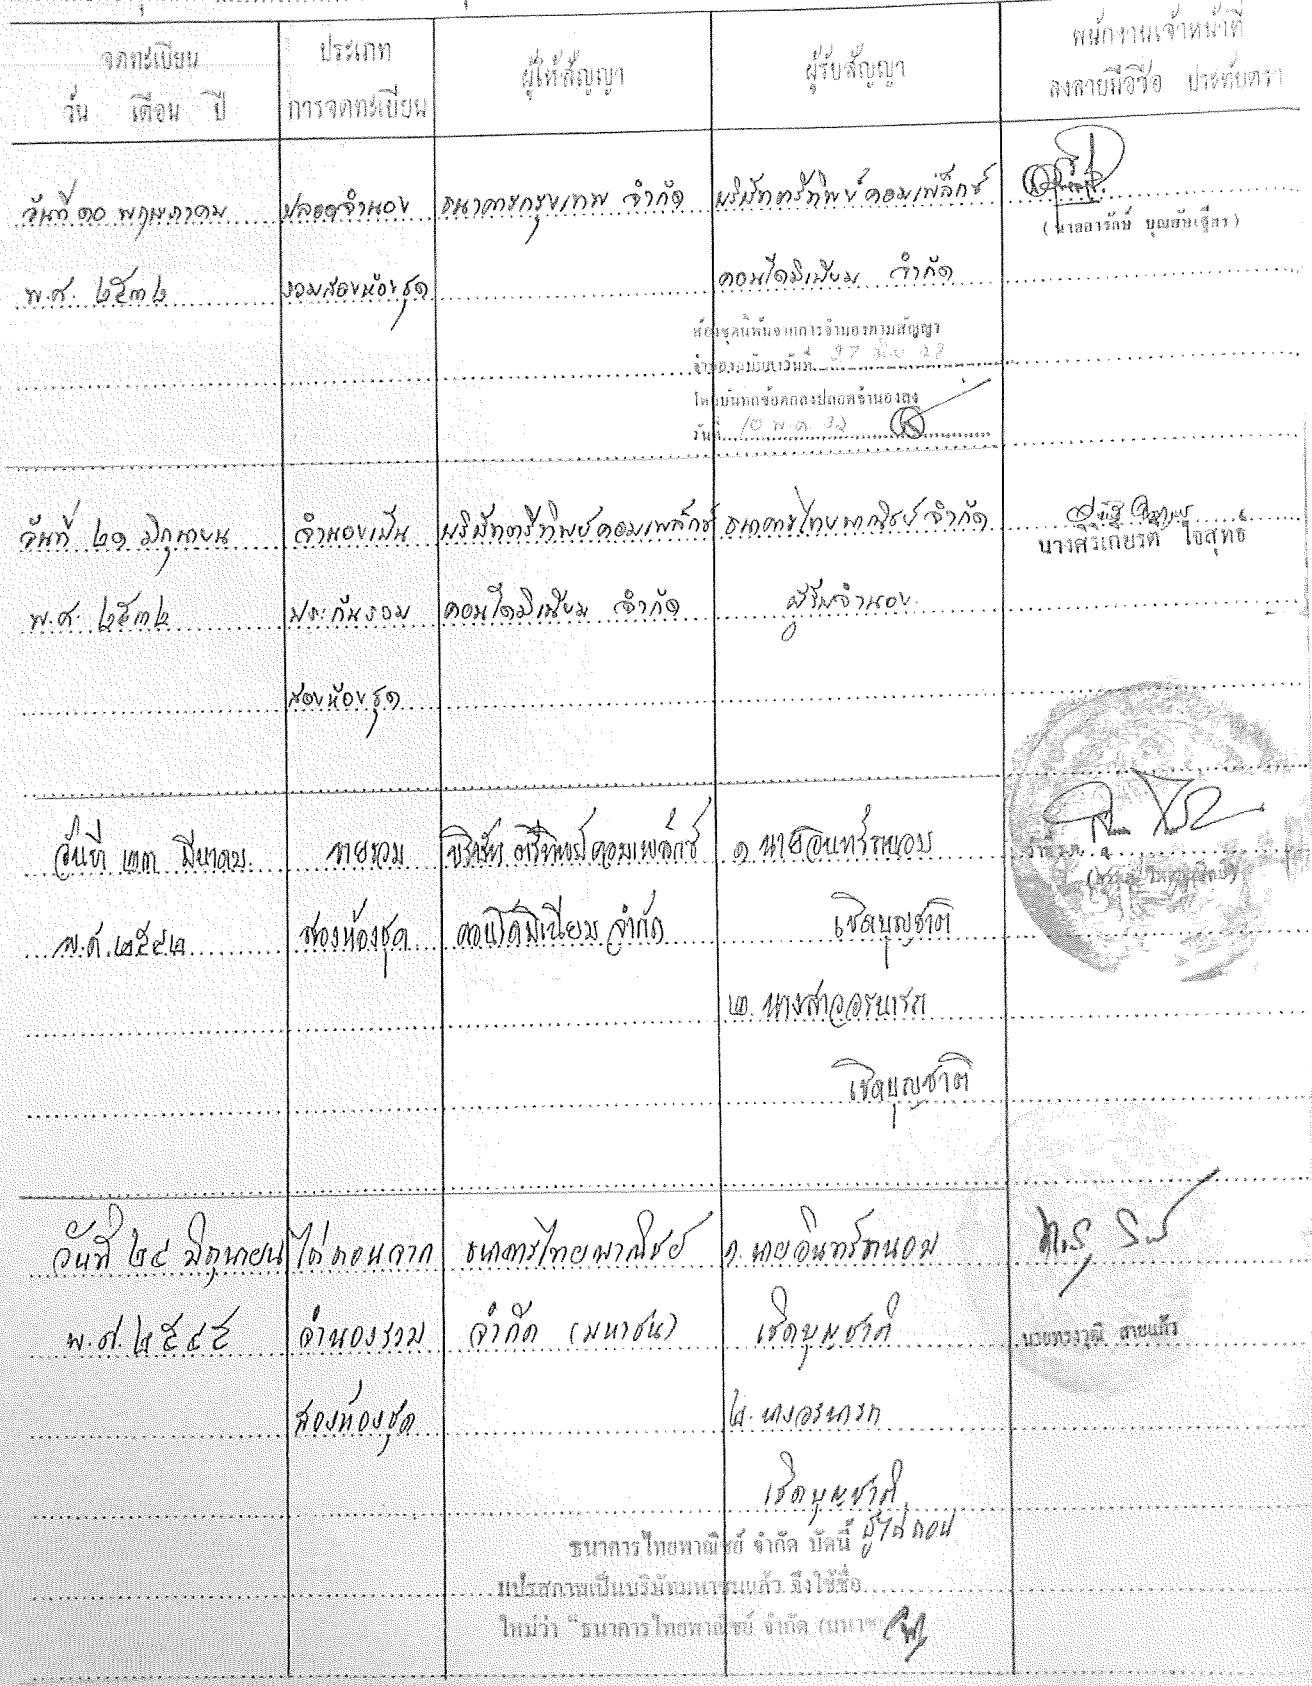 จดทะเบียน
วัน เดือน ปี
ประเภท
การจดทะเบียน
ผู้ให้สัญญา
ผู้รับสัญญา
พนักงานเจ้าหน้าที่
ลงลายมือชื่อ ประทับตรา
วันที่ ๑๐ พฤษภาคม
พ.ศ. ๒๕๓๒
ปลอดจำนอง
รวมสองห้องชุด
ธนาคารกรุงเทพ จำกัด
บริษัทตรีทิพย์คอมเพล็กซ์
คอนโดมิเนียม จำกัด
ห้องชุดนี้พ้นจากการจำนองตามสัญญา
จำนองฉบับลงวันที่
โดยบันทึกข้อตกลงปลอดจำนองลง
วันที่ 10 พ.ค. 32
วันที่ ๒๑ มิถุนายน
พ.ศ. ๒๕๓๒
จำนองเป็น
ประกันรวม
สองห้องชุด
บริษัทตรีทิพย์คอมเพล็กซ์
คอนโดมิเนียม จำกัด
ธนาคารไทยพาณิชย์ จำกัด
ผู้รับจำนอง
นางศิริเกียรติ ใจสุทธิ์
วันที่ ๒๓ มีนาคม
พ.ศ. ๒๕๔๒
ขายรวม
สองห้องชุด
บริษัท ตรีทิพย์คอมเพล็กซ์
คอนโดมิเนียม จำกัด
๑ นายอินทร์ถนอม
เชิดบุญชาติ
๒. นางสาวอรนารถ
เชิดบุญชาติ
วันที่ ๒๔ มิถุนายน
พ.ศ. ๒๕๔๕
ไถ่ถอนจาก
จำนองรวม
สองห้องชุด
ธนาคารไทยพาณิชย์
จำกัด (มหาชน)
๑. นายอินทร์ถนอม
เชิดบุญชาติ
๒. นางอรนารถ
เชิดบุญชาติ
ผู้ไถ่ถอน
นายทรงวุฒิ สายแก้ว
ธนาคารไทยพาณิชย์ จำกัด บัดนี้
แปรสภาพเป็นบริษัทมหาชนแล้ว จึงใช้ชื่อ
ใหม่ว่า "ธนาคารไทยพาณิชย์ จำกัด (มหาช